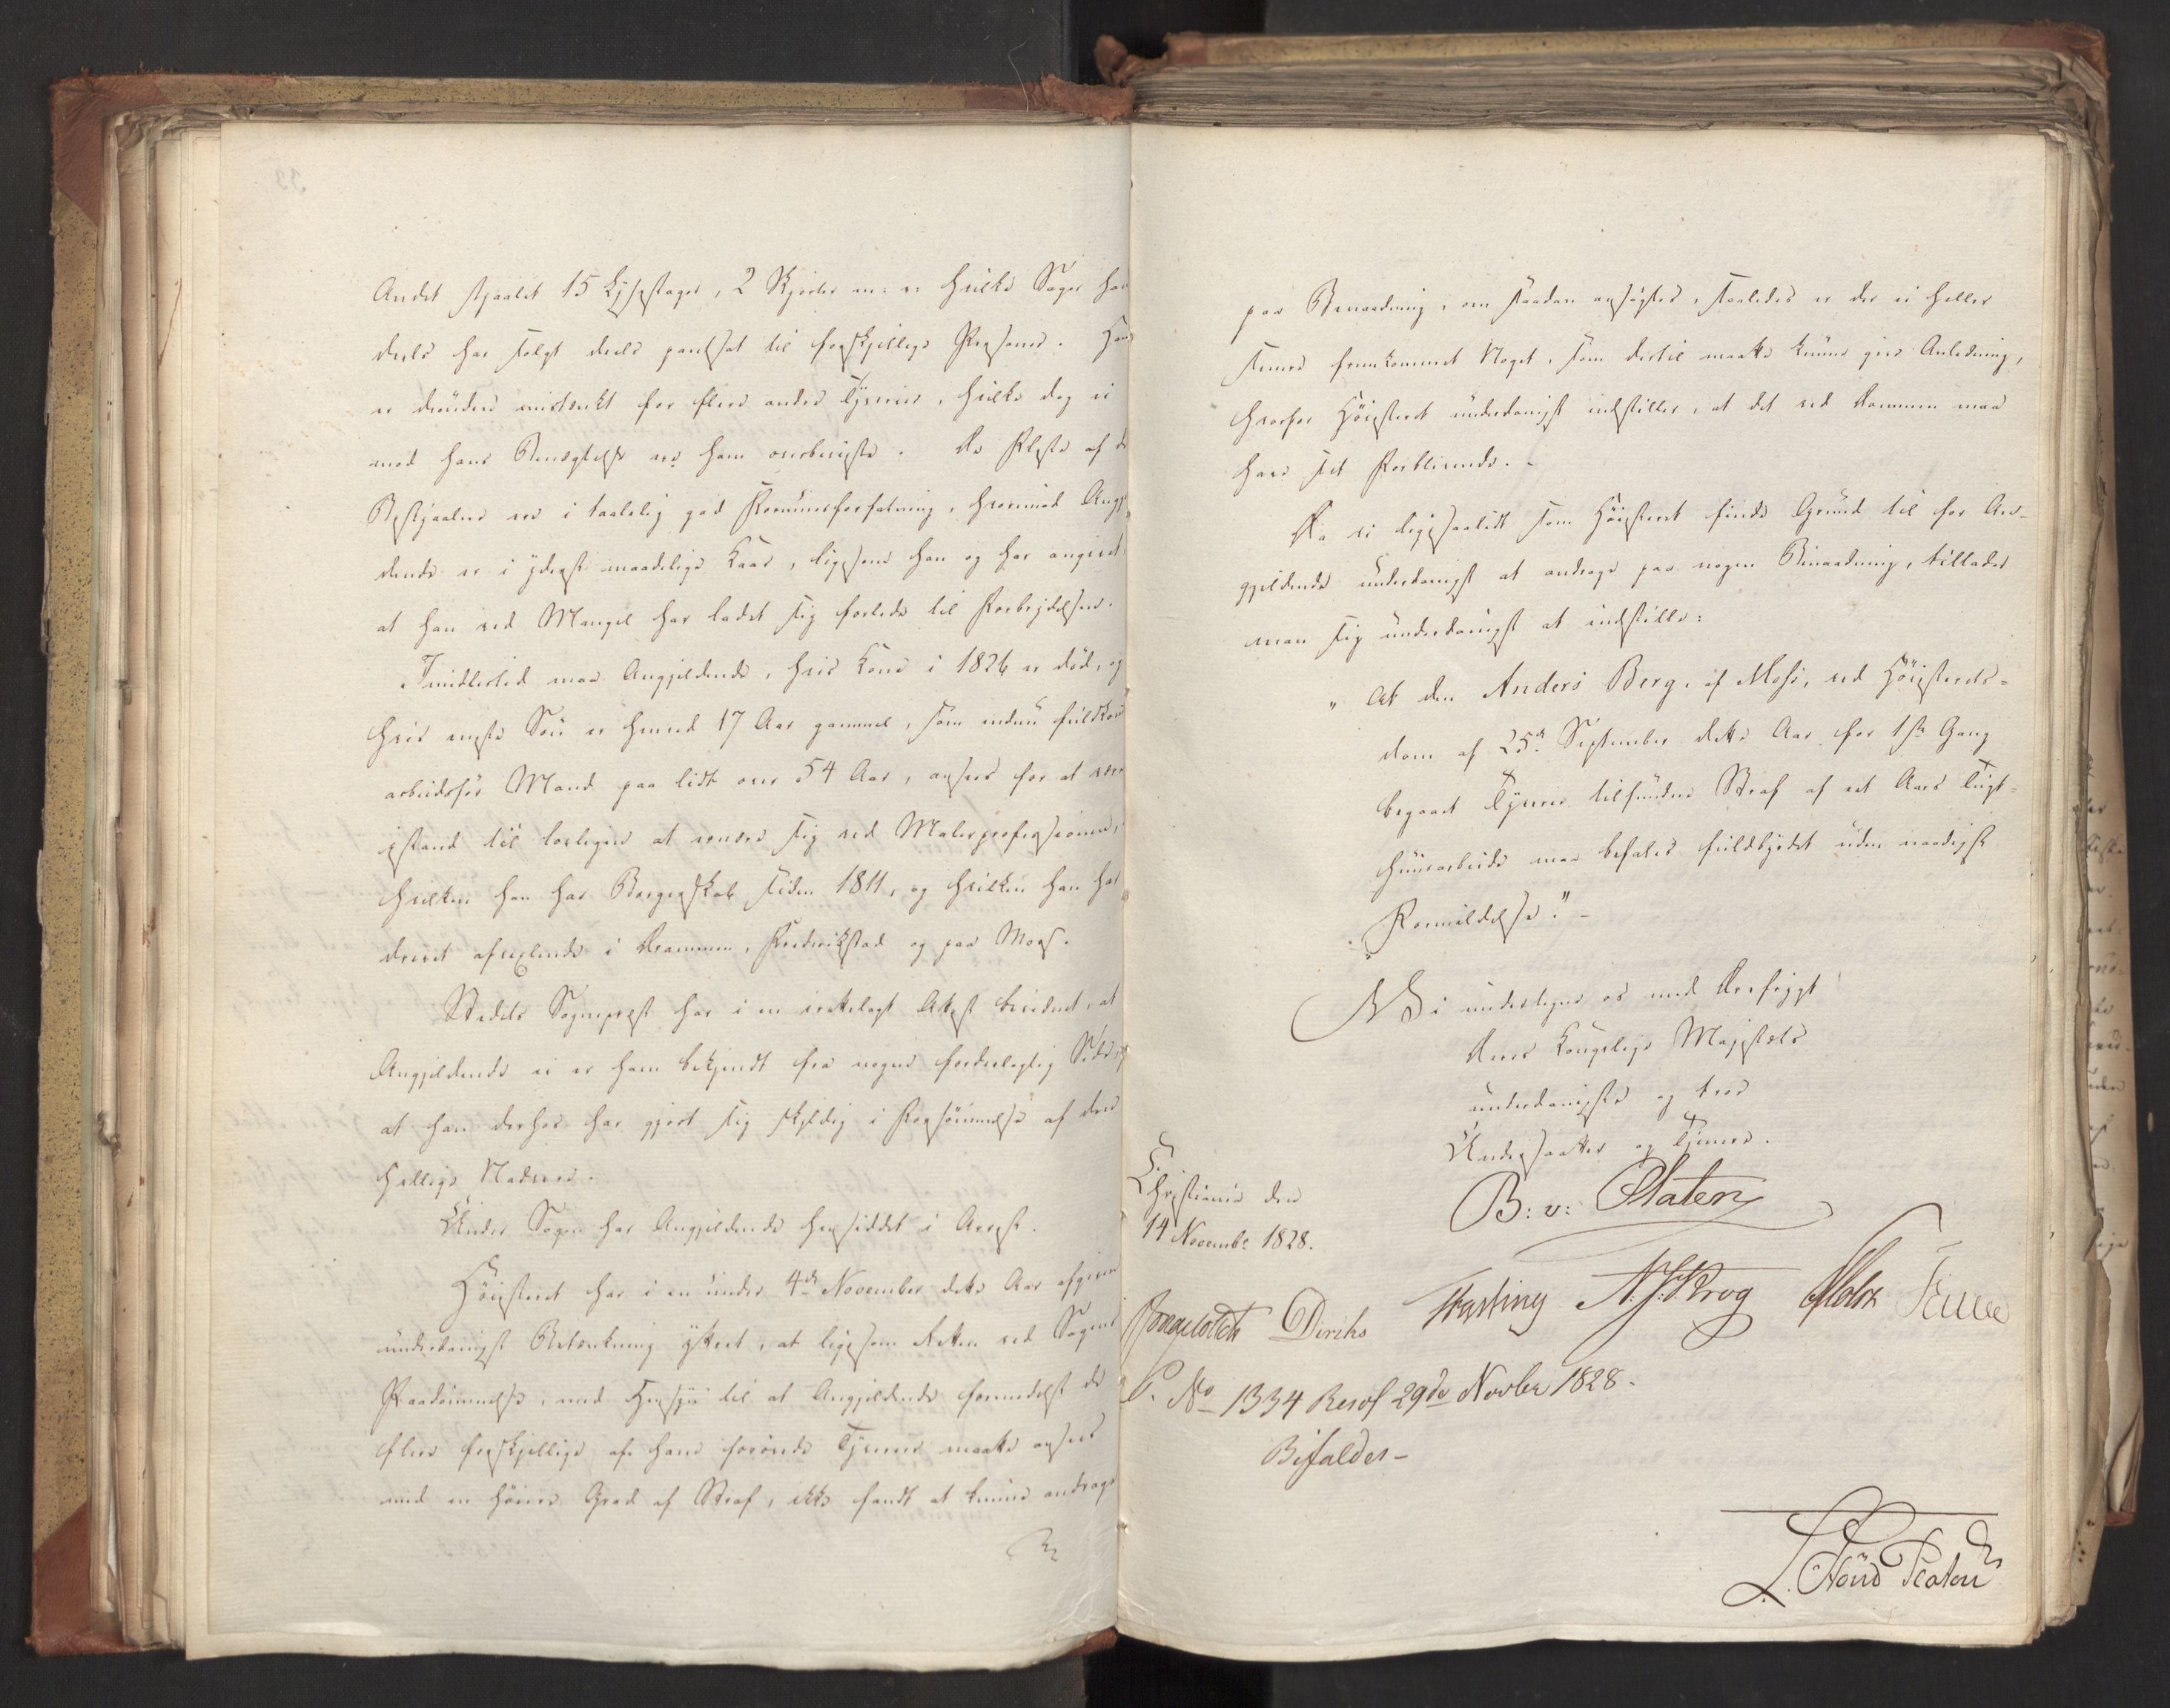 Andet stjaalet 15 Lysestager, 2 Skjorter m: v: hvilke Sager han
deels har solgt deels pantsat til forskjellige Personer. Han
er desuden mistænkt for flere andre Tyverier, hvilke dog ei
mod hans Benægtelse ere ham overbeviiste. De Fleste af de
Bestjaalne ere i taalelig god Formuesforfatning, hvorimod Angj
dende er i yderst maadelige Kaar, ligesom han og har angivet
at han ved Mangel har ladet sig forlede til Forbrydelsen.
Imidlertid maa Angjeldende, hvis Kone i 1826 er død, og
hvis yngste Søn er henved 17 Aar gammel, som endnu fuldkom
arbeidsfør Mand paa lidt over 54 Aar, ansees for at være
istand til lovligen at ernære sig ved Malerprofessionen,
hvilken han har Borgerskab siden 1811, og hvilken han har
drevet afvexlende i Drammen, Frederikstad og paa Moss.
Stedets Sognepræst har i en irettelagt Attest bevidnet, at
Angjeldende ei er ham bekjendt fra nogen fordeelagtig Side,
at han derhos har gjort sig skyldig i Forsømmelse af den
hellige Nadvere.
Under Sagen har Angjeldende hensiddet i Arrest.
Høiesteret har i en under 4de November dette Aar afgiven
underdanigst Betænkning yttret, at ligesom Retten ved Sagens
Paadømmelse, med Hensyn til at Angjeldende formedelst de
flere forskjellige af ham forøvede Tyverier maatte ansees
med en høiere Grad af Straf, ikke fandt at kunne andrage
paa Benaadning, om saadan ansøgtes, saaledes er der ei heller
senere fremkommet Noget, som dertil maatte kunne give Anledning,
hvorfor Høiesteret underdanigst indstiller, at det ved Dommen maa
have sit Forblivende.
Da vi ligesaalidt som Høiesteret finde Grund til for An-
gjeldende underdanigst at andrage paa nogen Benaadning, tillader
man sig underdanigst at indstille:
"At den Anders Berg, af Moss, ved Høiesterets-
dom af 25de September dette Aar for 1ste Gang
begaaet Tyverie tilfundne Straf af et Aars Tugt-
huusarbeide maa befales fuldbyrdet uden naadigst
Formildelse."-
Vi undertegne os med Ærefrygt
Deres Kongelige Majestæts
underdanigste og troe
Undersaatter og Tjenere.
B: v: Platen
Christiania den
14 Novembr 1828.
Diriks Fasting N. J. Krog Holst
P. No 1334 Resol 29de Novbr 1828.
Bifaldes-